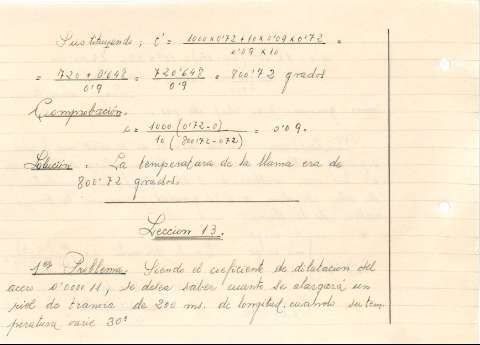 Sustituyendo; t' = (1000 x 0'72 + 10 x 0'09 x 0'72) / (0'09 x 10) =
= (720 + 0'648) / 0'9 = 720'648 / 0'9 = 800'72 grados
Comprobación.
c = 1000 (0'72 - 0) / 10 (800'72 - 0'72) = 0'09.
Solución. La temperatura de la llama era de
800'72 grados.
Leccion 13.
1er Problema. Siendo el coeficiente de dilatacion del
acero 0'000011, se desea saber cuanto se alargará un
riel de tranvia de 200 ms. de longitud, cuando su tem-
peratura varie 30º